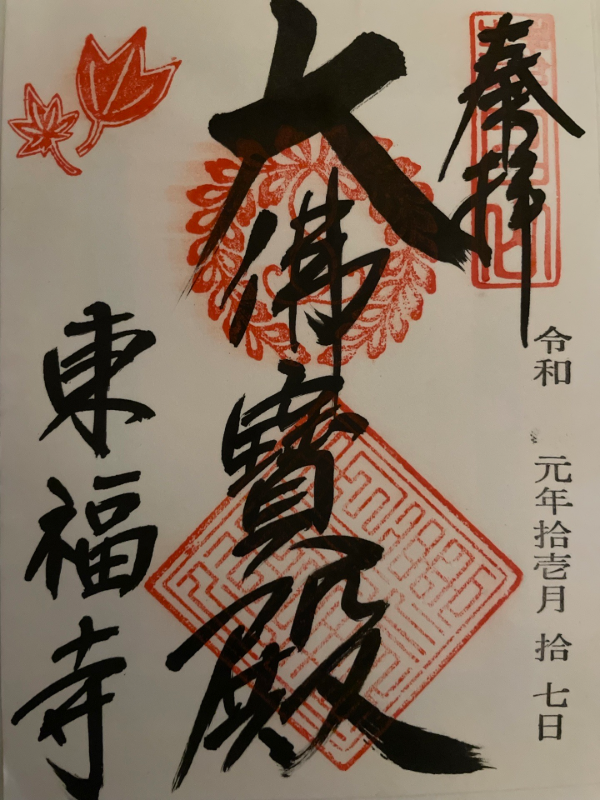 奉拝
令和 元年拾壱月 拾七日
大佛寶殿
東福寺